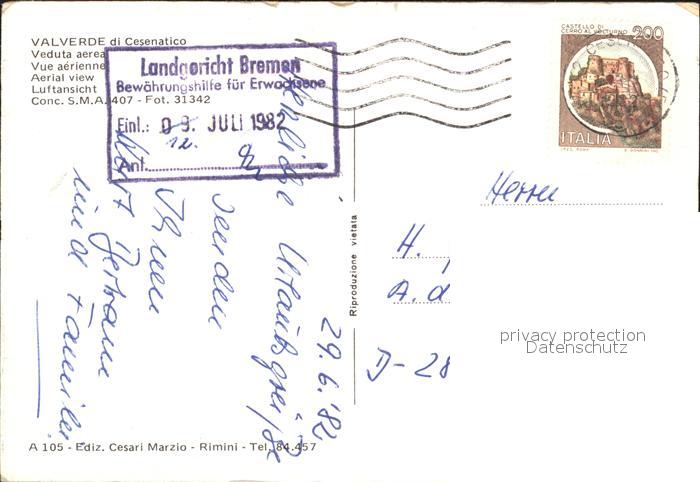 VALVERDE di Cesenatico
Veduta aerea
Vue aérienne
Aerial view
Luftansicht
Conc. S.M.A. 407 - Fot. 31342
Landgericht Bremen
Bewährungshilfe für Erwachsene
Einl.: 09. JULI 1982
12.
Ant.
CASTELLO DI
CERRO AL VOLTURNO 200
ITALIA
29.6.'82
Herzliche Urlaubsgrüße
senden
Ihnen
Horst Bertram
und Familie
Riproduzione vietata
Herrn
H.
A. d
D-28
privacy protection
Datenschutz
A 105 - Ediz. Cesari Marzio - Rimini - Tel. 84.457